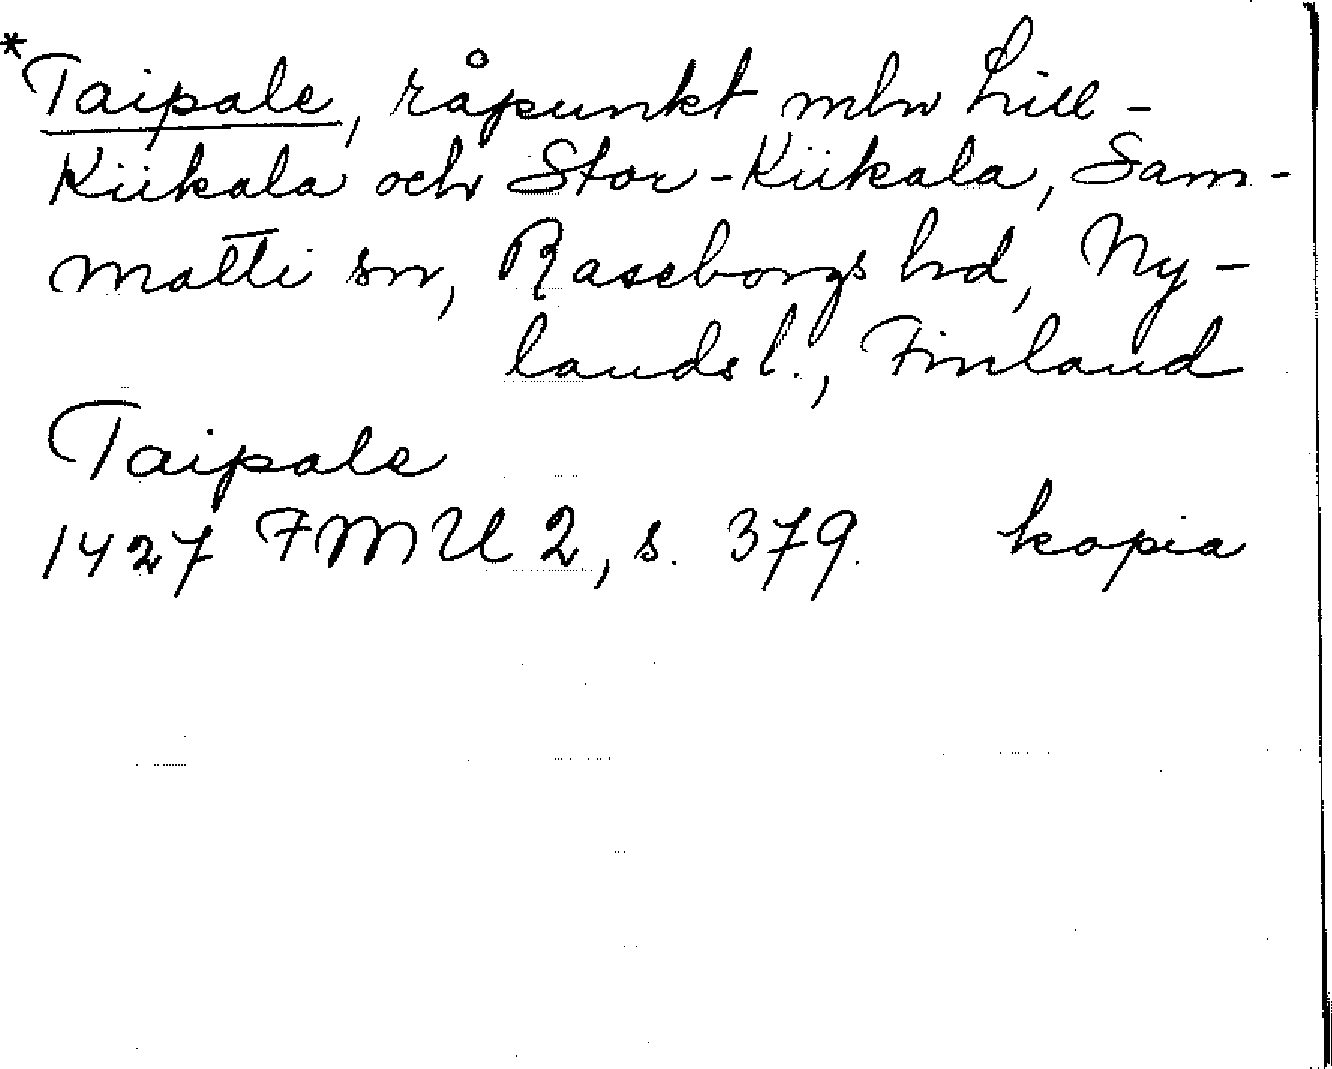 *Taipale, råpunkt mln Lill-
Kiikala och Stor-Kiikala, Sam-
matti sn, Raseborgs hd, Ny-
lands l., Finland
Taipale
1427 FMU 2, s. 379. kopia